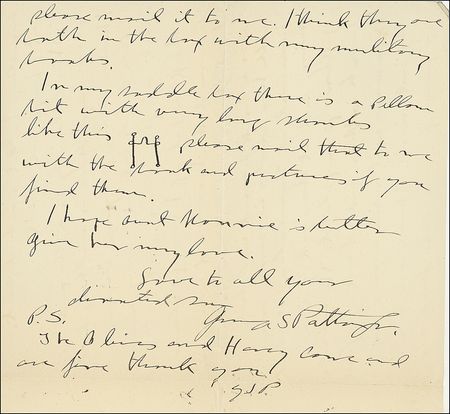 please mail it to me. I think they are
both in the box with my military
books.
In my saddle box there is a pillow
bit with very long shanks
like this please mail that to me
with the book and pictures if you
find them.
I hope aunt Nannie is better
give her my love.
Love to all your
devoted son
George S Patton Jr.
P.S.
The Olives and Honey came and
are fine thank you.
GSP.